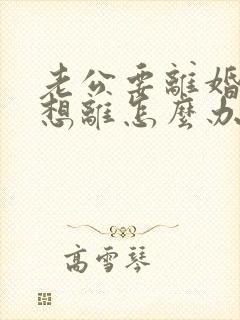 老公要離婚
想離怎麼办
高雪琴